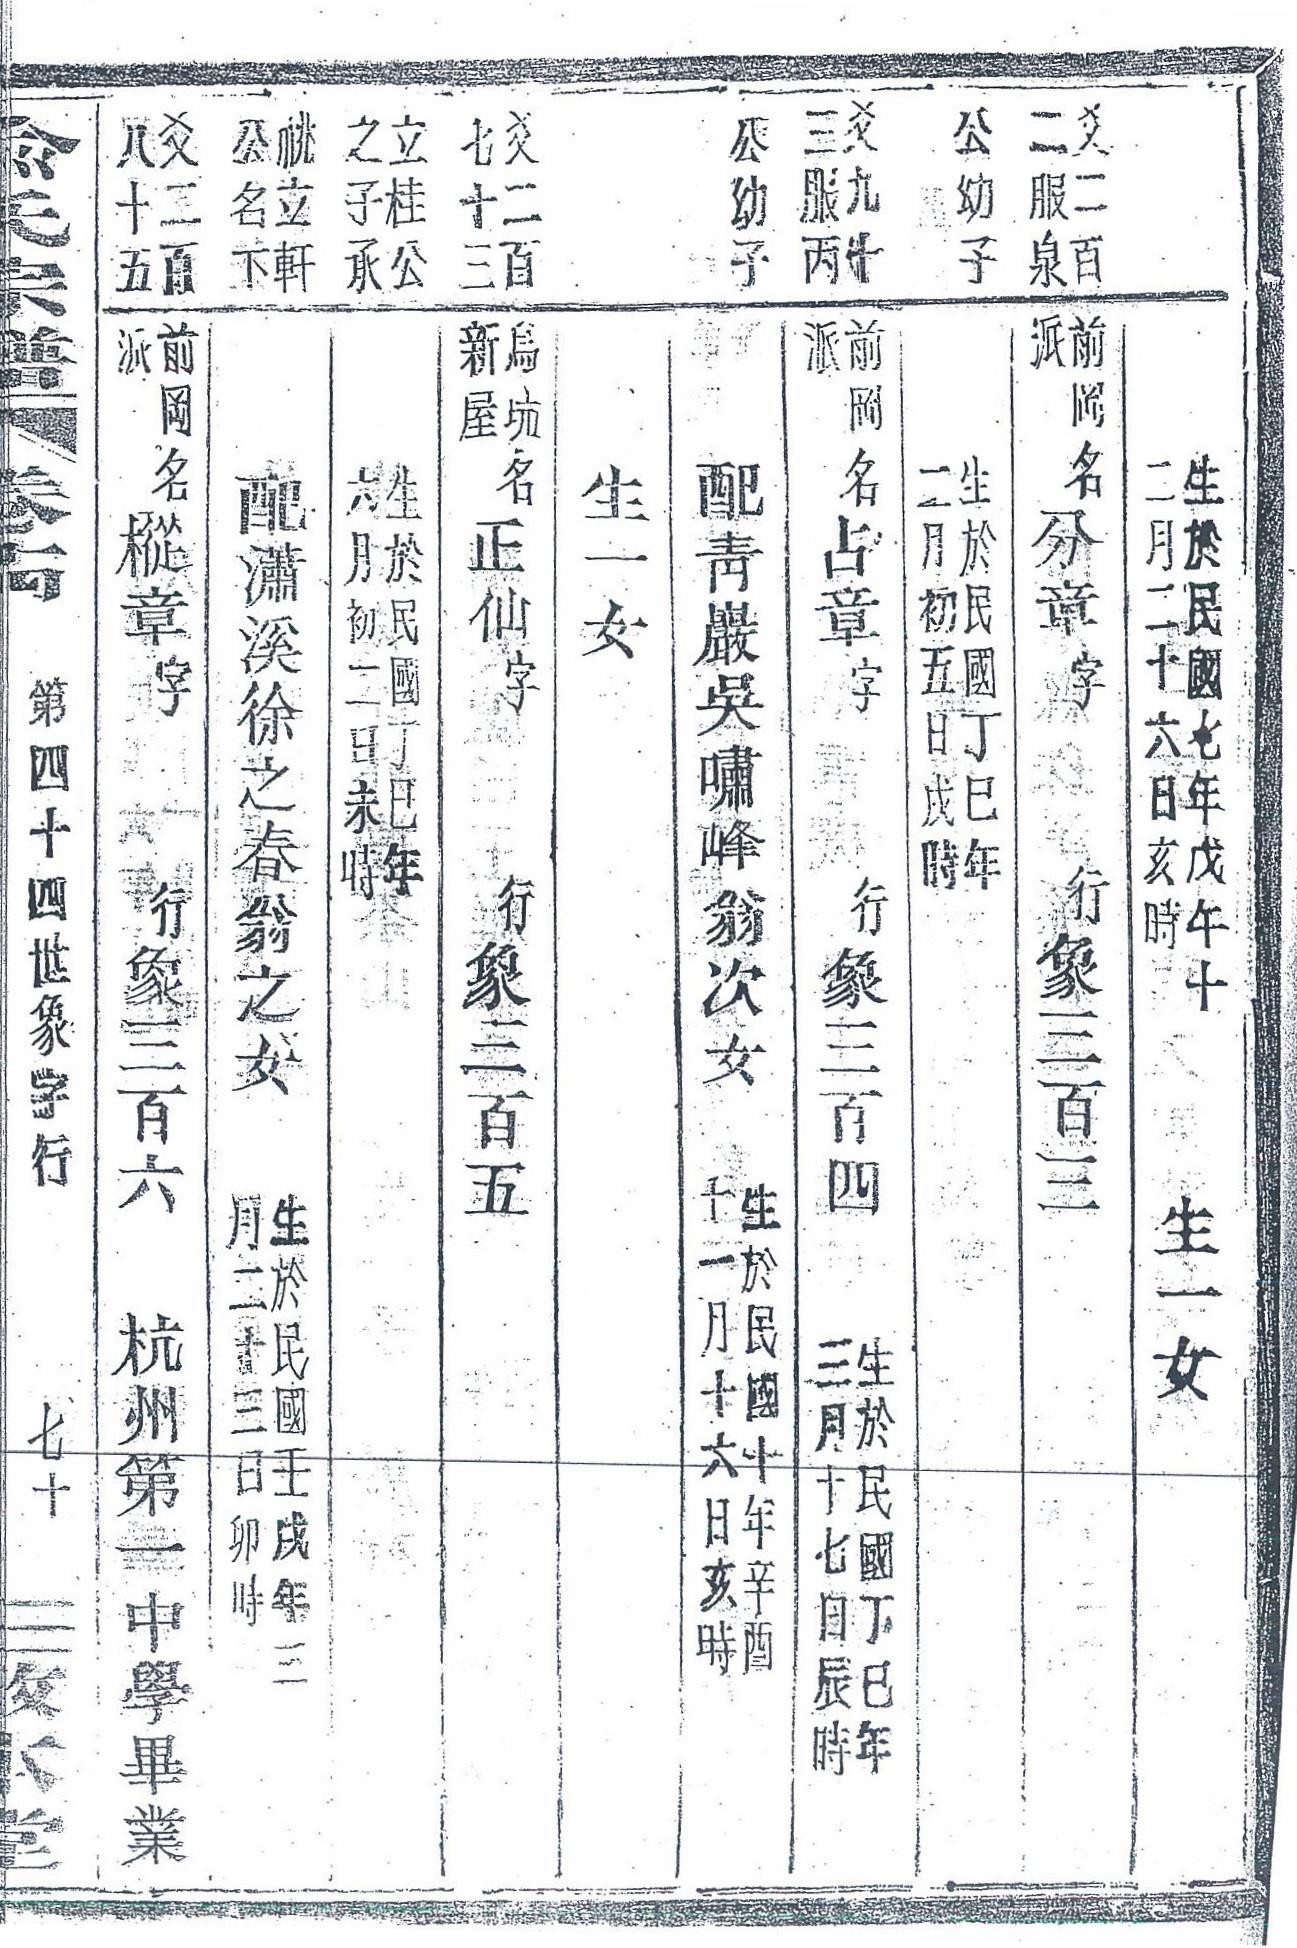 生於民國七年戊午十
二月二十六日亥時
生一女
爻二百
二服泉
前岡
派
名分章字
行象三百三
公幼子
生於民國丁巳年
二月初五日戌時
爻九十
三服丙
前岡
派
名占章字
行象三百四
生於民國丁巳年
三月十七日辰時
公幼子
配靑巖吳嘯峰翁次女
生於民國十年辛酉
十一月十六日亥時
生一女
爻二百
七十三
烏坑
新屋
名正仙字
行象三百五
立桂公
之子承
生於民國丁巳年
六月初二日未時
祧立軒
公名下
配瀟溪徐之春翁之女
生於民國壬戌年三
月二十三日卯時
爻三百
八十五
前岡
派
名樅章字
行象三百六
杭州第一中學畢業
氏宗譜
第四十四世象字行
七十